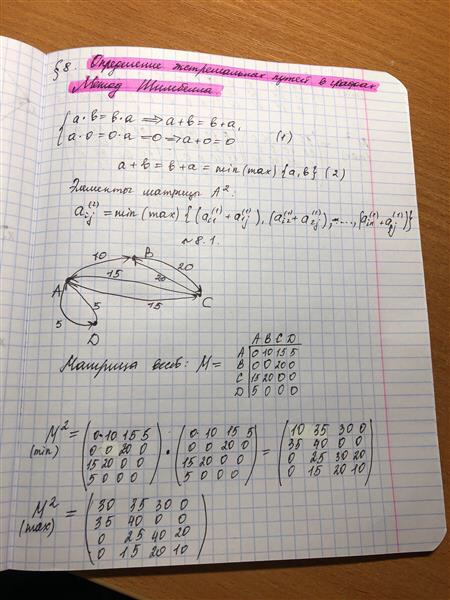 § 8. Определение экстремальных путей в графах
Метод Шимбелла
{ a·b = b·a ⟹ a+b = b+a,
a·0 = 0·a = 0 ⟹ a+0 = 0 (1)
a+b = b+a = min (max) {a,b} (2)
Элементы матрицы A².
a_ij^(2) = min (max) {(a_i1^(1) + a_1j^(1)), (a_i2^(1) + a_2j^(1)), ..., (a_in^(1) + a_nj^(1))}
~ 8.1.
10 B
15 20
A 20
15 C
5 5
D
A B C D
Матрица весов: M =
A 0 10 15 5
B 0 0 20 0
C 15 20 0 0
D 5 0 0 0
M² (min) = ( 0 10 15 5 ) · ( 0 10 15 5 ) = ( 10 35 30 0 )
( 0 0 20 0 ) ( 0 0 20 0 ) ( 35 40 0 0 )
( 15 20 0 0 ) ( 15 20 0 0 ) ( 0 25 30 20 )
( 5 0 0 0 ) ( 5 0 0 0 ) ( 0 15 20 10 )
M² (max) = ( 30 35 30 0 )
( 35 40 0 0 )
( 0 25 40 20 )
( 0 15 20 10 )